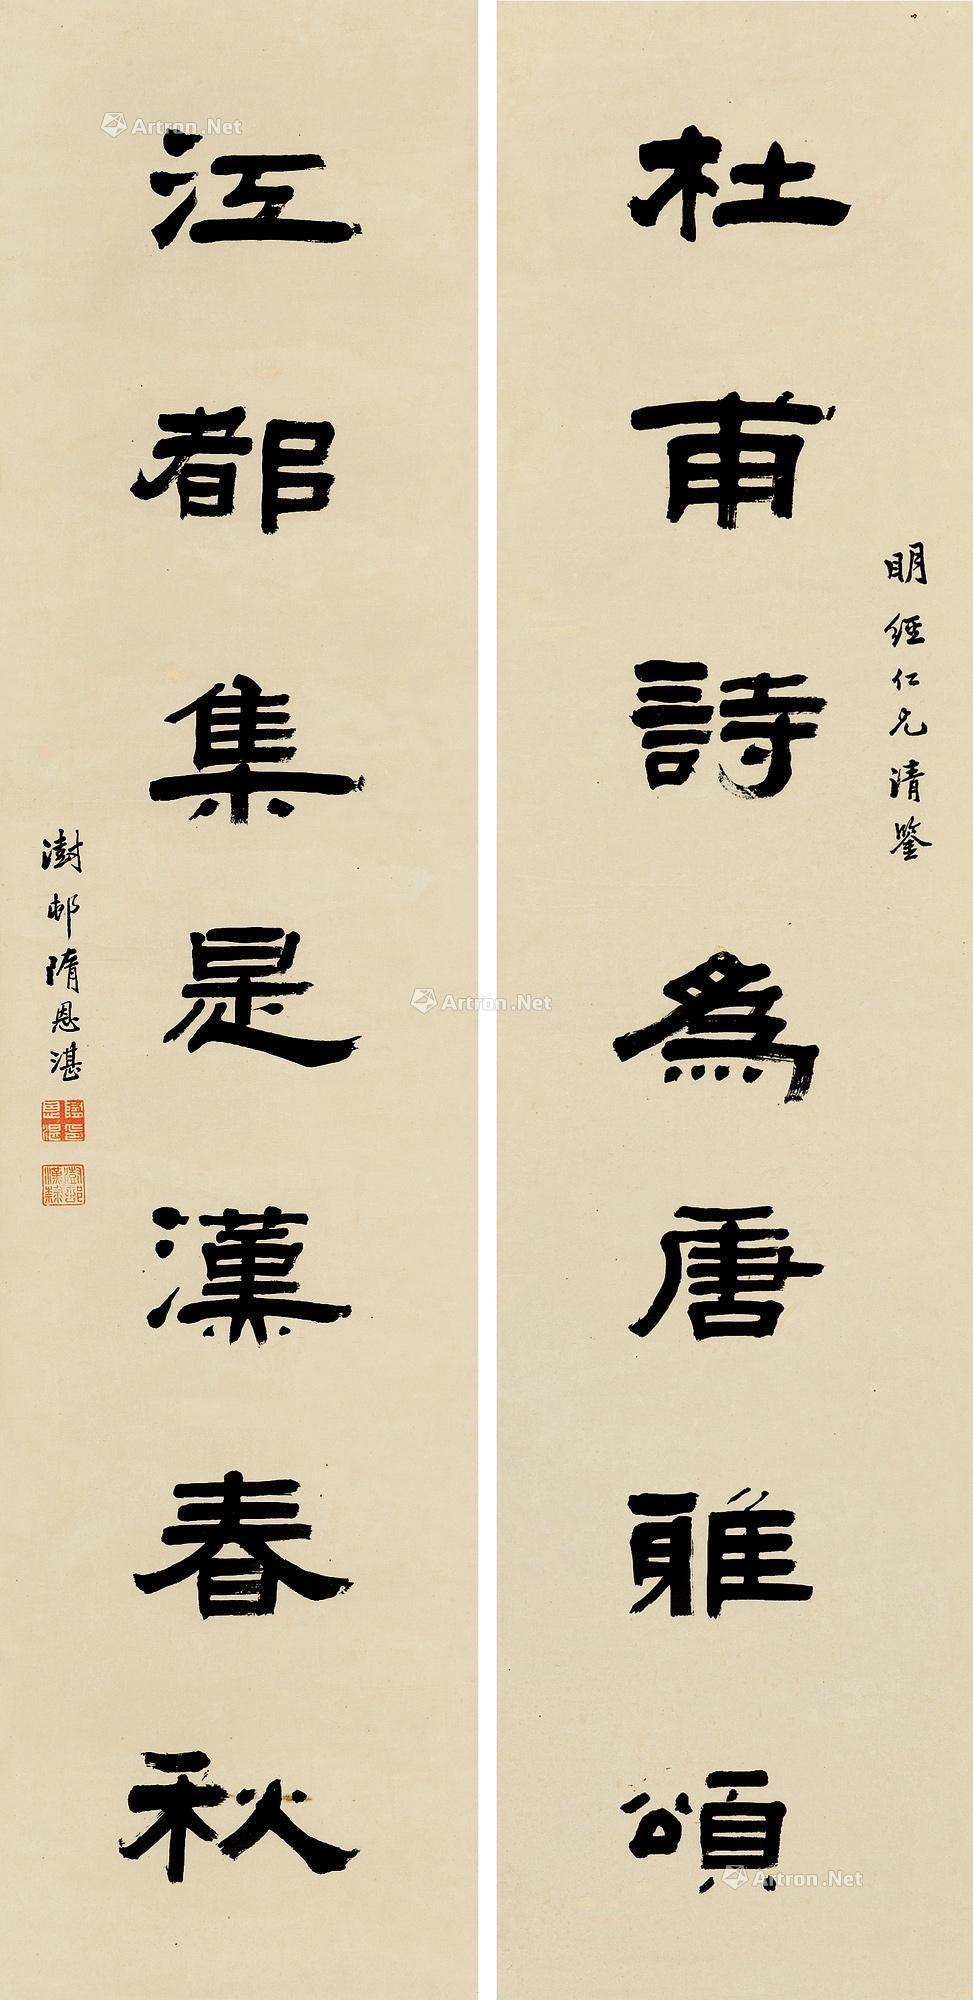 杜甫詩爲唐雅頌
明經仁兄清鑒
江都集是漢春秋
澍邨隋恩湛
Artron.Net
Artron.Net
Artron.Net